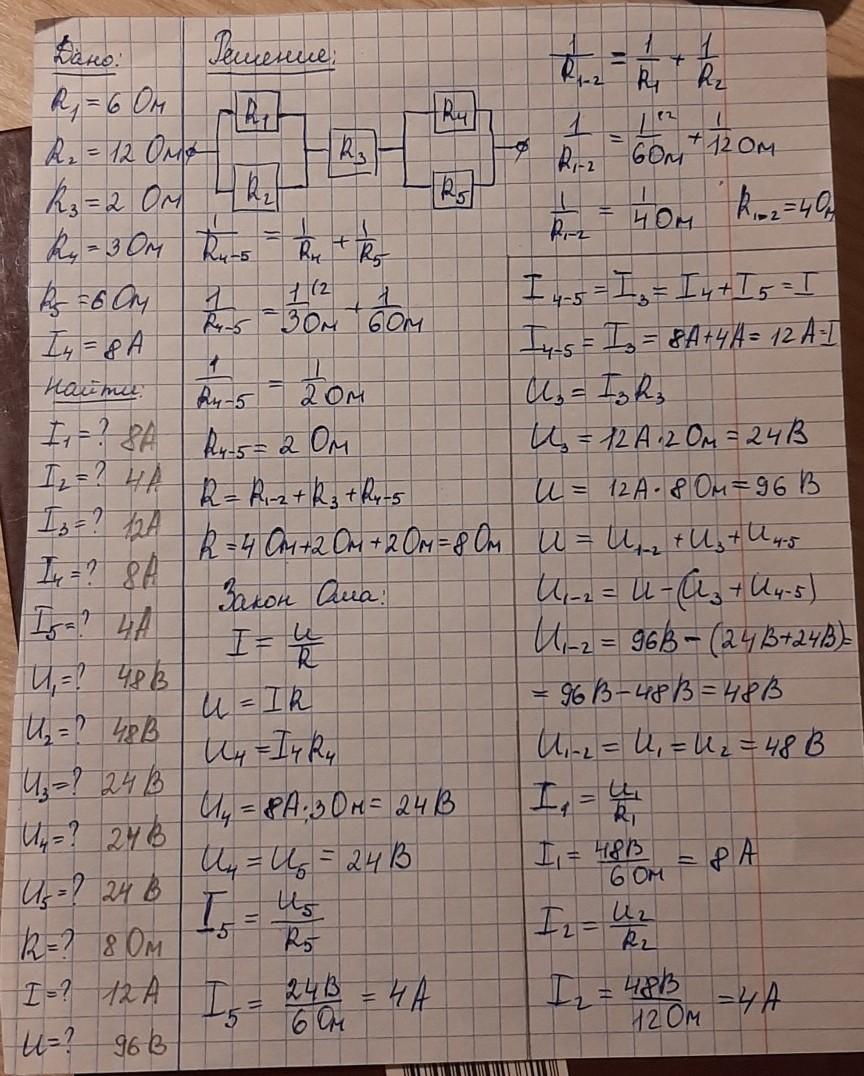 Дано:
R₁ = 6 Ом
R₂ = 12 Ом
R₃ = 2 Ом
R₄ = 3 Ом
R₅ = 6 Ом
I₄ = 8А
Найти:
I₁ = ? 8А
I₂ = ? 4А
I₃ = ? 12А
I₄ = ? 8А
I₅ = ? 4А
U₁ = ? 48В
U₂ = ? 48В
U₃ = ? 24В
U₄ = ? 24В
U₅ = ? 24В
R = ? 8 Ом
I = ? 12А
U = ? 96В
Решение:
R₁
R₂
R₃
R₄
R₅
1/R₄₋₅ = 1/R₄ + 1/R₅
1/R₄₋₅ = 1(2/3Ом + 1/6Ом
1/R₄₋₅ = 1/2Ом
R₄₋₅ = 2 Ом
R = R₁₋₂ + R₃ + R₄₋₅
R = 4 Ом + 2 Ом + 2 Ом = 8 Ом
Закон Ома:
I = U/R
U = IR
U₄ = I₄R₄
U₄ = 8А · 3 Ом = 24В
U₄ = U₅ = 24В
I₅ = U₅/R₅
I₅ = 24В/6 Ом = 4А
1/R₁₋₂ = 1/R₁ + 1/R₂
1/R₁₋₂ = 1(2/6Ом + 1/12Ом
1/R₁₋₂ = 1/4Ом R₁₋₂ = 4Ом
I₄₋₅ = I₃ = I₄ + I₅ = I
I₄₋₅ = I₃ = 8А + 4А = 12А = I
U₃ = I₃R₃
U₃ = 12А · 2 Ом = 24В
U = 12А · 8 Ом = 96 В
U = U₁₋₂ + U₃ + U₄₋₅
U₁₋₂ = U − (U₃ + U₄₋₅)
U₁₋₂ = 96В − (24В + 24В) =
= 96В − 48В = 48В
U₁₋₂ = U₁ = U₂ = 48В
I₁ = U₁/R₁
I₁ = 48В/6 Ом = 8 А
I₂ = U₂/R₂
I₂ = 48В/12 Ом = 4А